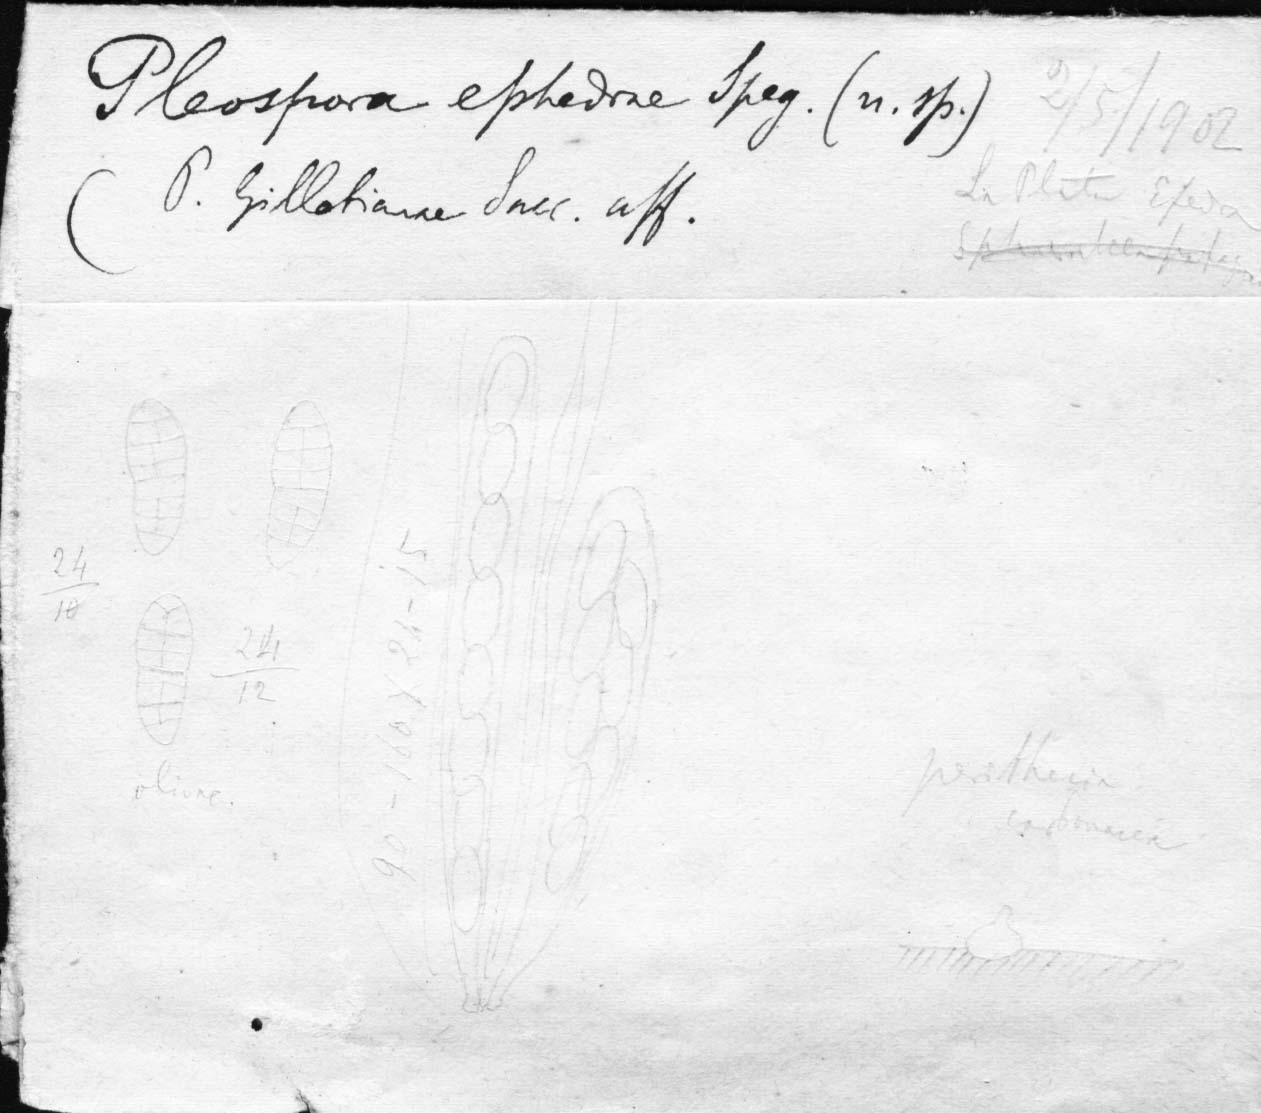 Pleospora ephedrae Speg. (n. sp.)
( P. Gilletiana Sacc. aff.
2/5/1902
La Plata Efedra
24
10
24
12
olivac.
90-160 X 24-15
perithecia
carbonacea